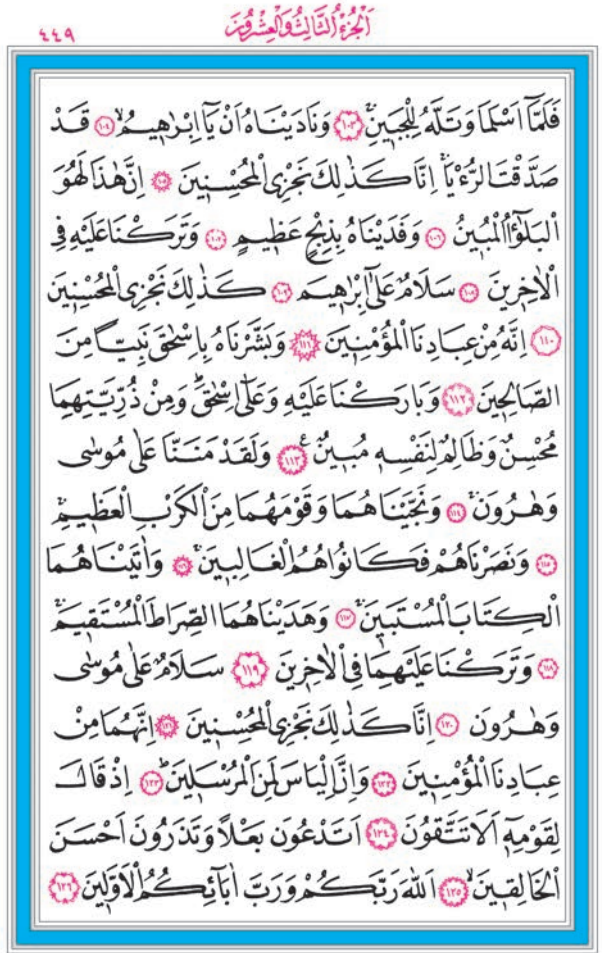 اَلْجُزْءُ الثَّالِثُ وَالْعِشْرُونَ
٤٤٩
فَلَمَّٓا اَسْلَمَا وَتَلَّهُ لِلْجَبٖينِۚ ﴿١٠٣﴾ وَنَادَيْنَاهُ اَنْ يَٓا اِبْرٰهٖيمُۙ ﴿١٠٤﴾ قَدْ
صَدَّقْتَ الرُّءْيَاۚ اِنَّا كَذٰلِكَ نَجْزِي الْمُحْسِنٖينَ ﴿١٠٥﴾ اِنَّ هٰذَا لَهُوَ
الْبَلٰٓؤُا الْمُبٖينُ ﴿١٠٦﴾ وَفَدَيْنَاهُ بِذِبْحٍ عَظٖيمٍ ﴿١٠٧﴾ وَتَرَكْنَا عَلَيْهِ فِي
الْاٰخِرٖينَ ﴿١٠٨﴾ سَلَامٌ عَلٰٓى اِبْرٰهٖيمَ ﴿١٠٩﴾ كَذٰلِكَ نَجْزِي الْمُحْسِنٖينَ
﴿١١٠﴾ اِنَّهُ مِنْ عِبَادِنَا الْمُؤْمِنٖينَ ﴿١١١﴾ وَبَشَّرْنَاهُ بِاِسْحٰقَ نَبِيًّا مِنَ
الصَّالِحٖينَ ﴿١١٢﴾ وَبَارَكْنَا عَلَيْهِ وَعَلٰٓى اِسْحٰقَۜ وَمِنْ ذُرِّيَّتِهِمَا
مُحْسِنٌ وَظَالِمٌ لِنَفْسِهٖ مُبٖينٌ۟ ﴿١١٣﴾ وَلَقَدْ مَنَنَّا عَلٰى مُوسٰى
وَهٰرُونَۚ ﴿١١٤﴾ وَنَجَّيْنَاهُمَا وَقَوْمَهُمَا مِنَ الْكَرْبِ الْعَظٖيمِۚ
﴿١١٥﴾ وَنَصَرْنَاهُمْ فَكَانُوا هُمُ الْغَالِبٖينَۚ ﴿١١٦﴾ وَاٰتَيْنَاهُمَا
الْكِتَابَ الْمُسْتَبٖينَۚ ﴿١١٧﴾ وَهَدَيْنَاهُمَا الصِّرَاطَ الْمُسْتَقٖيمَۚ
﴿١١٨﴾ وَتَرَكْنَا عَلَيْهِمَا فِي الْاٰخِرٖينَ ﴿١١٩﴾ سَلَامٌ عَلٰى مُوسٰى
وَهٰرُونَ ﴿١٢٠﴾ اِنَّا كَذٰلِكَ نَجْزِي الْمُحْسِنٖينَ ﴿١٢١﴾ اِنَّهُمَا مِنْ
عِبَادِنَا الْمُؤْمِنٖينَ ﴿١٢٢﴾ وَاِنَّ اِلْيَاسَ لَمِنَ الْمُرْسَلٖينَۜ ﴿١٢٣﴾ اِذْ قَالَ
لِقَوْمِهٖٓ اَلَا تَتَّقُونَ ﴿١٢٤﴾ اَتَدْعُونَ بَعْلًا وَتَذَرُونَ اَحْسَنَ
الْخَالِقٖينَۙ ﴿١٢٥﴾ اَللّٰهَ رَبَّكُمْ وَرَبَّ اٰبَٓائِكُمُ الْاَوَّلٖينَ ﴿١٢٦﴾